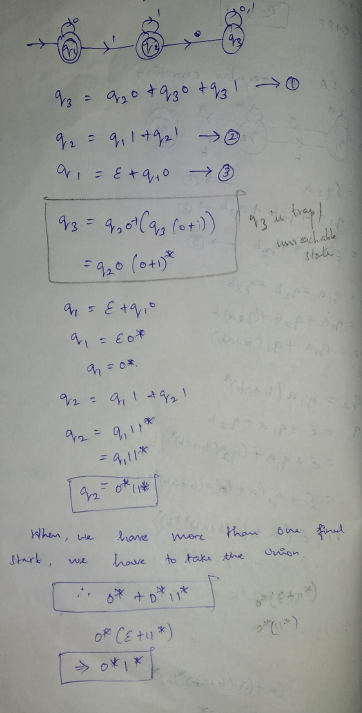 0 1 0,1
q1 1 q2 0 q3
q3 = q20 + q30 + q31 → ①
q2 = q11 + q21 → ②
q1 = ε + q10 → ③
q3 = q20 + (q3 (0+1))
= q20 (0+1)*
q3 is trap /
unreachable
state
q1 = ε + q10
q1 = ε0*
q1 = 0*.
q2 = q11 + q21
q2 = q111*
= q111*
q2 = 0*11*
When, we have more than one final
start, we have to take the union.
∴ 0* + 0*11*
0* (ε + 11*)
⇒ 0*1*